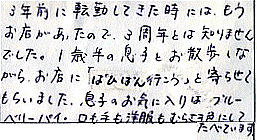 3年前に転勤してきた時には、もう
お店があたので、3周年とは知りません
でした。1歳半の息子とお散歩しな
がら、お店に「ぱんぱん行こう」と寄らせて
もらいました。息子のお気に入りは、ブルー
ベリーパイ。口も手も洋服もむらさき色にして
たべています